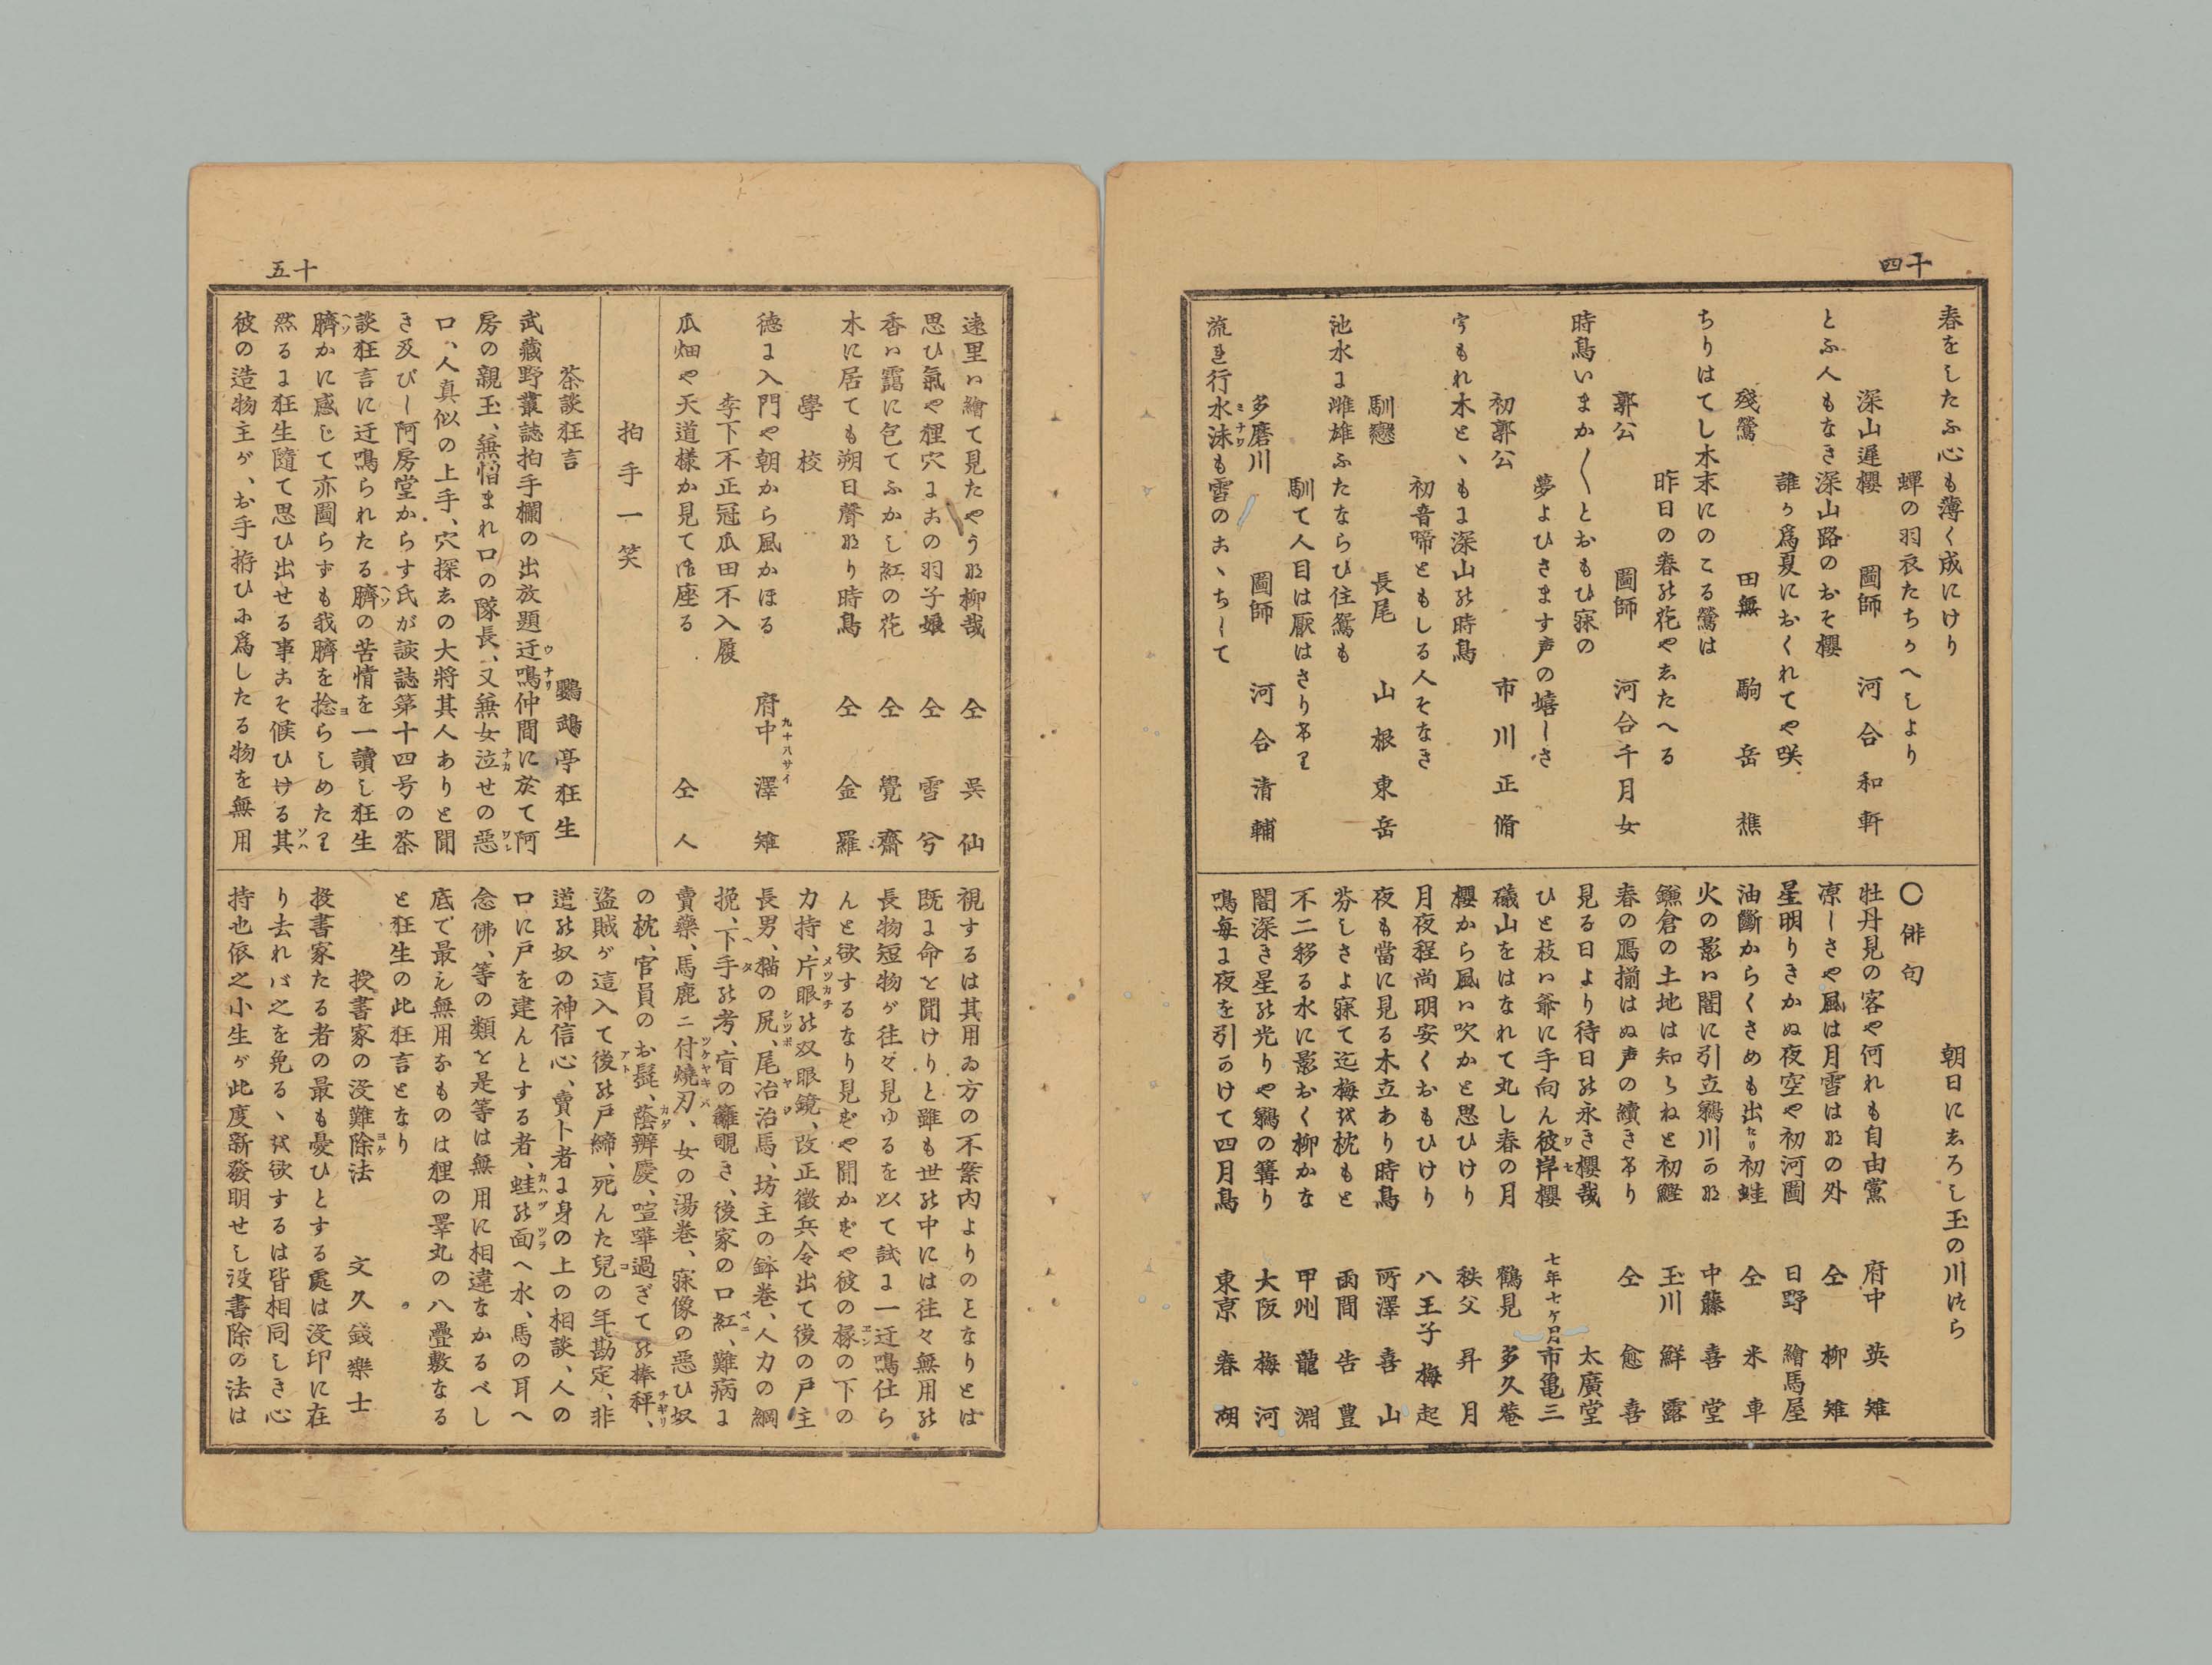 十四
春をしたふ心も薄く成にけり
蟬の羽衣たちかへしより
深山遅櫻　圖師　河合和軒
とふ人もなき深山路のおそ櫻
誰か爲夏におくれてや咲
殘鶯　田無　駒岳樵
ちりはてし木末にのこる鶯は
昨日の春の花やしたへる
郭公　圖師　河合千月女
時鳥いまか〱とおもひ寐の
夢よひさます声の嬉しさ
初郭公　市川正脩
うもれ木とゝもに深山の時鳥
初音啼ともしる人そなき
馴戀　長尾　山根東岳
池水に雌雄ふたならひ住鴛も
馴て人目は厭はさりけり
多磨川　圖師　河合清輔
流れ行水沫も雪のこゝちして
朝日にしろし玉の川つら
〇俳句
牡丹見の客や何れも自由黨　府中　英雉
凉しさや風は月雪はなの外　仝　柳雉
星明りきかぬ夜空や初河圖　日野　繪馬屋
油斷からくさめも出たり初蛙　仝　米車
火の影は闇に引立鵜川かな　中藤　喜堂
鎌倉の土地は知らねと初鰹　玉川　鮮露
春の鴈揃はぬ声の續きけり　仝　愈喜
見る日より待日の永き櫻哉　太廣堂
ひと枝は爺に手向ん彼岸櫻　七年七ケ月　市亀三
礒山をはなれて丸し春の月　鶴見　多久菴
櫻から風は吹かと思ひけり　秩父　昇月
月夜程尚明安くおもひけり　八王子　梅起
夜も當に見る木立あり時鳥　所澤　喜山
芬しさよ寐て迄梅を枕もと　函間　告豊
不二移る水に影おく柳かな　甲州　龍淵
闇深き星の光りや鵜の篝り　大阪　梅河
鳴毎に夜を引かけて四月鳥　東京　春湖
十五
遠里は繪て見たやうな柳哉　仝　呉仙
思ひ氣や狸穴にこの羽子娘　仝　雪兮
香は靄に包てふかし紅の花　仝　覺齋
木に居ても朔日聲なり時鳥　仝　金羅
學校
徳に入門や朝から風かほる　府中　九十八サイ　澤雉
李下不正冠瓜田不入履
瓜畑や天道様か見て御座る　仝　仝人
拍手一笑
茶談狂言　鸚鵡亭狂生
武藏野叢誌拍手欄の出放題迂鳴仲間に於て阿
房の親玉、無悋まれ口の隊長、又無女泣せの惡
口、人真似の上手、穴探しの大將其人ありと聞
き及びし阿房堂からす氏が該誌第十四号の茶
談狂言に迂鳴られたる臍の苦情を一讀し狂生
臍かに感じて亦圖らずも我臍を捻らしめたり
然るに狂生隨て思ひ出せる事こそ候ひける其
彼の造物主が、お手拵ひに爲したる物を無用
視するは其用ゐ方の不案内よりのとなりとは
既に命と聞けりと雖も世の中には往々無用の
長物短物が往々見ゆるを以て試に一迂鳴仕ら
んと欲するなり見ずや聞かずや彼の椽の下の
力持、片眼の双眼鏡、改正徴兵令出て後の戸主
長男、猫の尻、尾冶治馬、坊主の鉢巻、人力の綱
挽、下手の考、盲の籬覗き、後家の口紅、難病に
賣藥、馬鹿ニ付燒刃、女の湯巻、寐像の惡ひ奴
の枕、官員のお髭、蔭辨慶、喧嘩過ぎての棒秤、
盜賊が這入て後の戸締、死んだ兒の年勘定、非
道の奴の神信心、賣卜者に身の上の相談、人の
口に戸を建んとする者、蛙の面へ水、馬の耳へ
念佛、等の類と是等は無用に相違なかるべし
底で最も無用なものは狸の睾丸の八疊敷なる
と狂生の此狂言となり
投書家の没難除法　文久錢樂士
投書家たる者の最も憂ひとする處は没印に在
り去れバ之を免るゝを欲するは皆相同しき心
持也依之小生が此度新發明せし没書除の法は